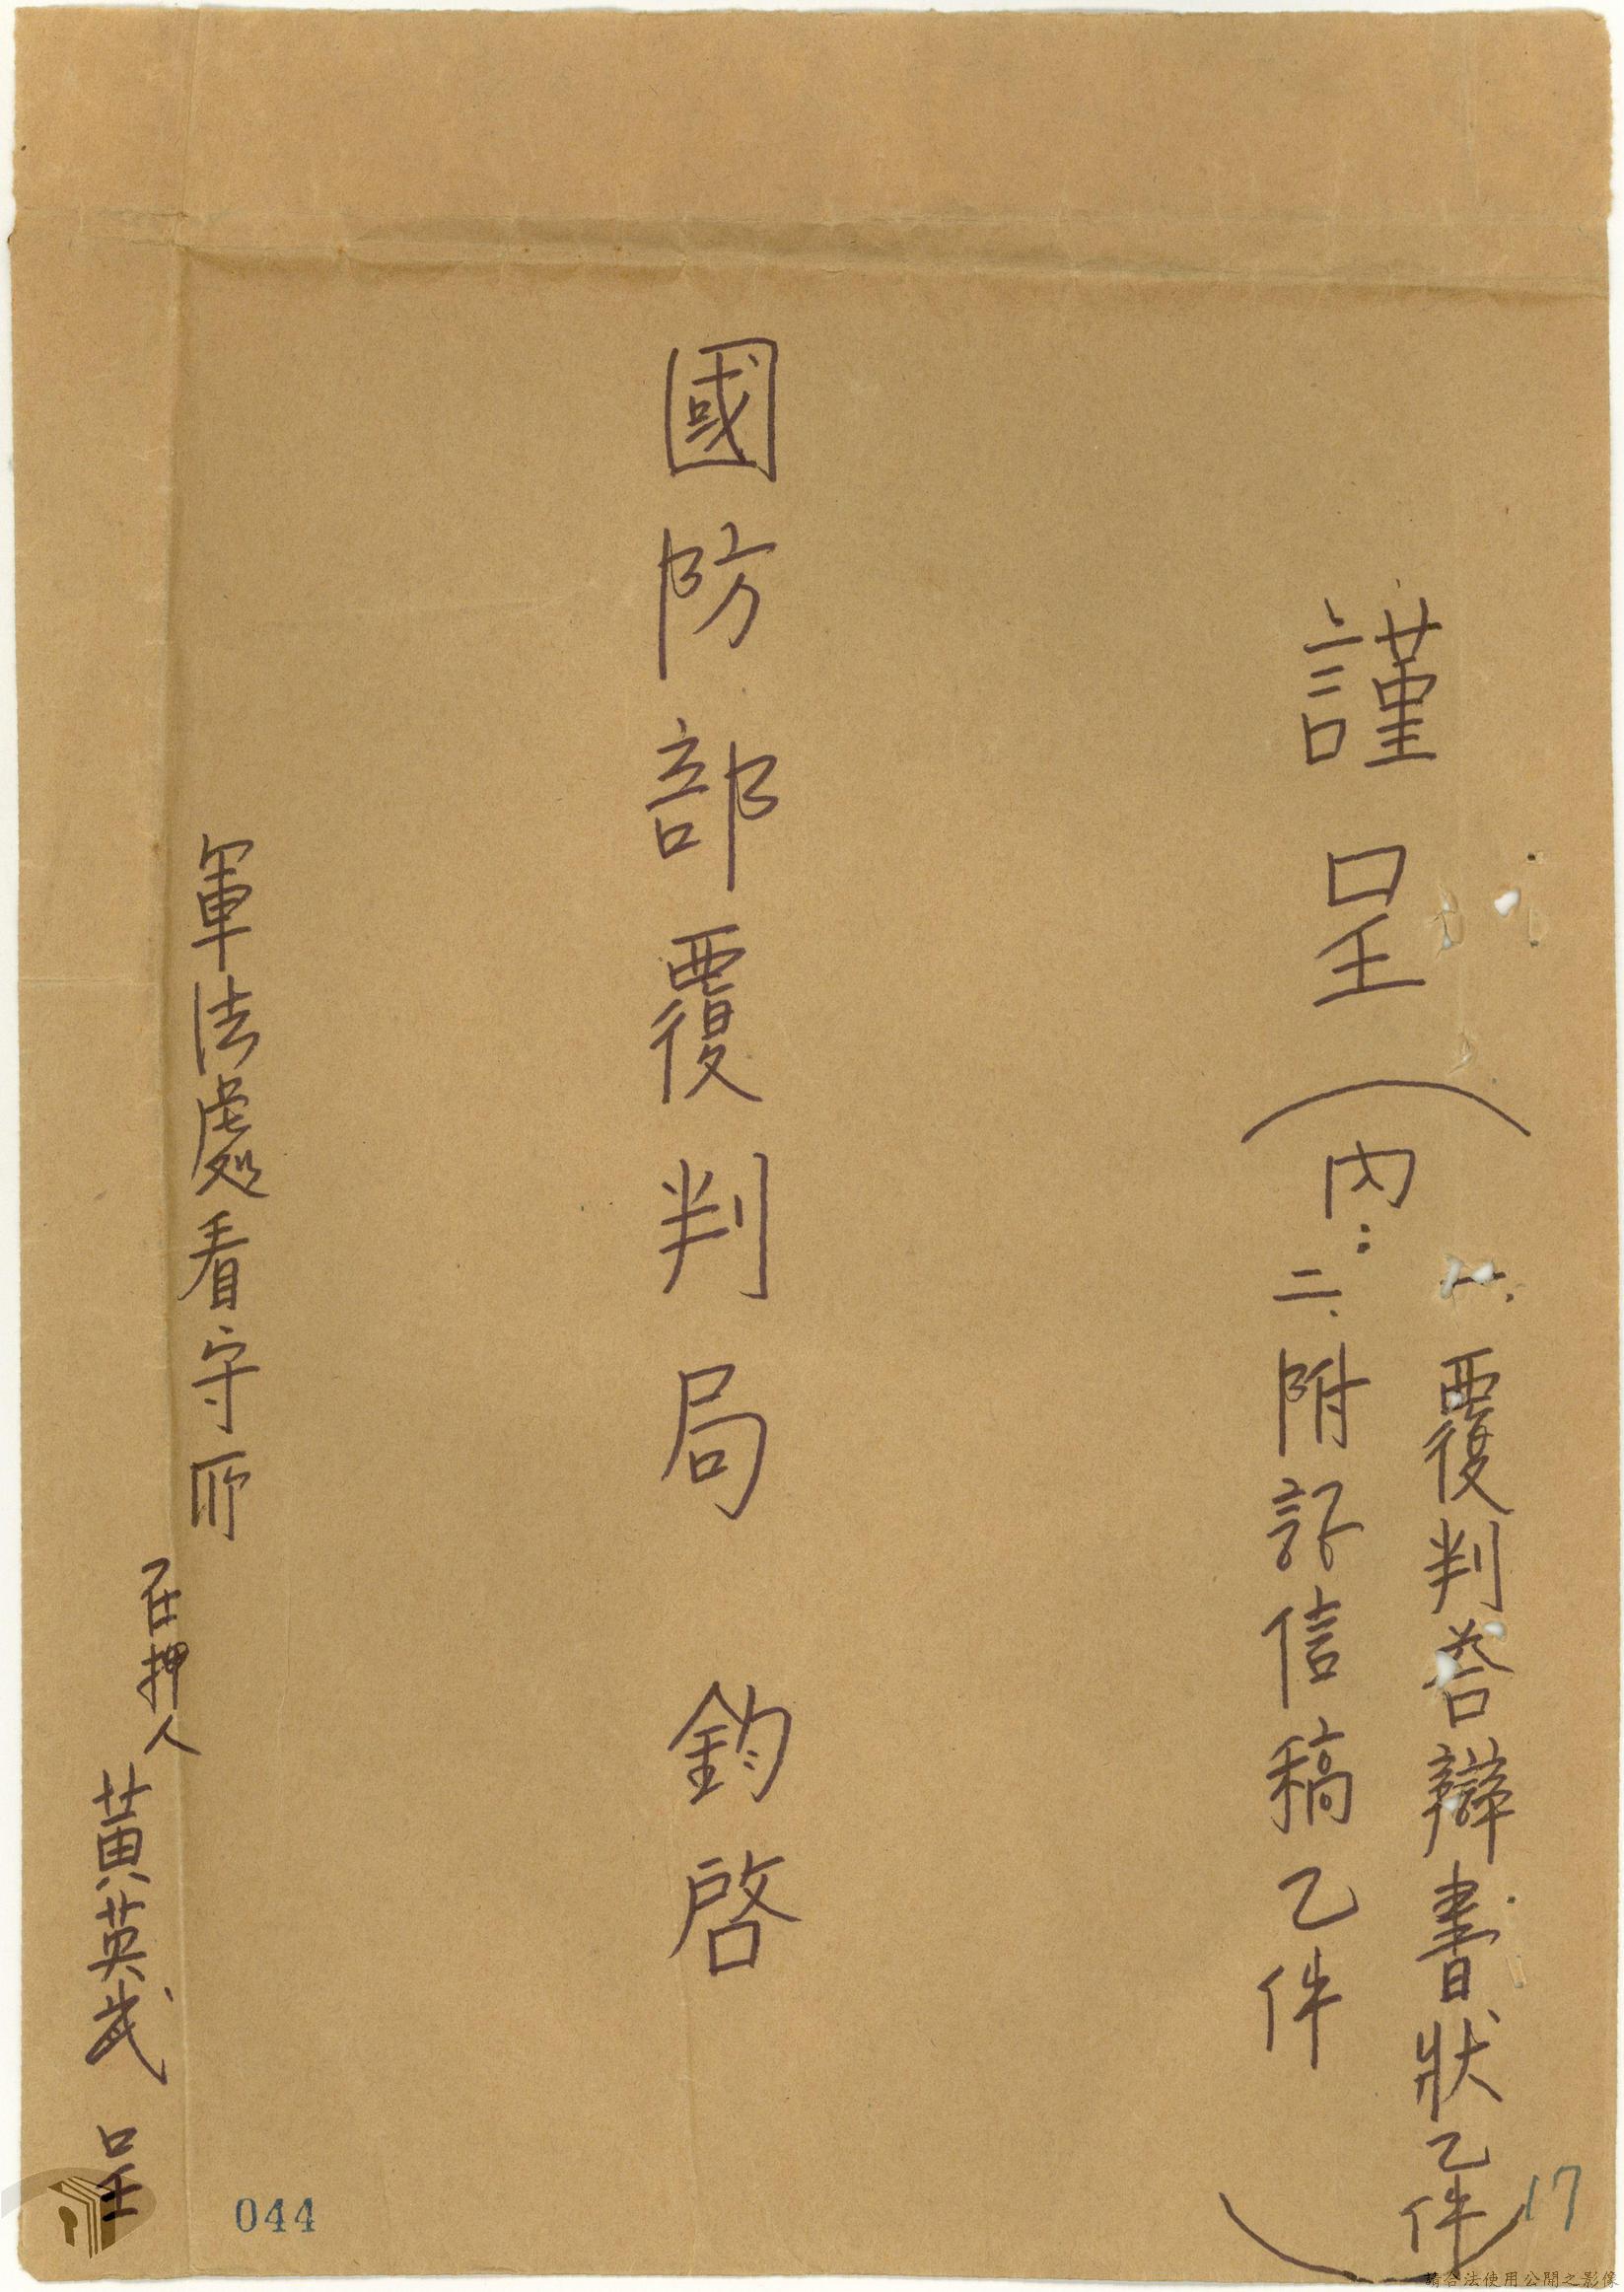 謹呈(內:
一、覆判答辯書狀乙件
二、附訴信稿乙件)
國防部覆判局 鈞啓
軍法處看守所
在押人
黃英武 呈
044
17
請合法使用公開之影像